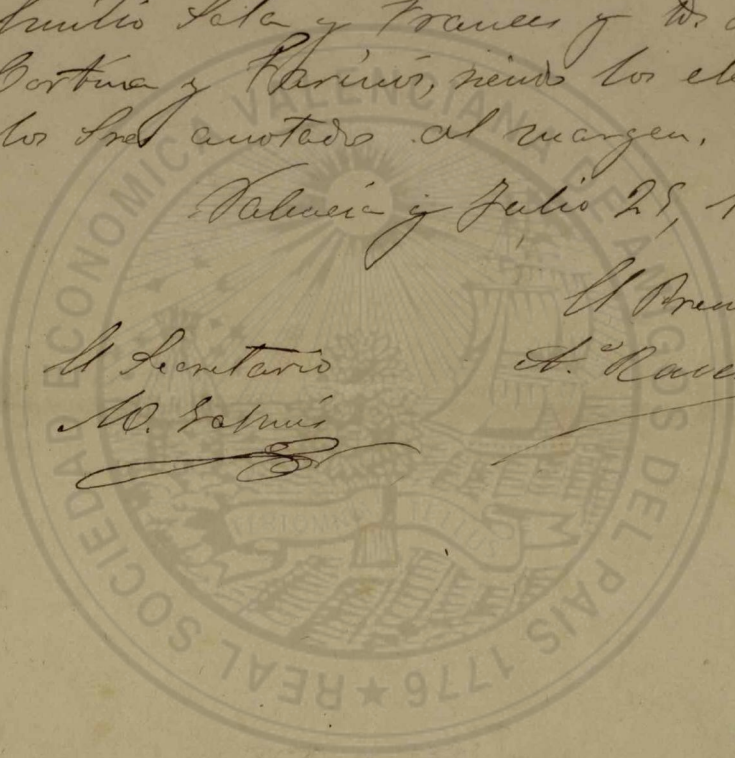 Emilio Sala y Frances y D.
Cortina y Farinós, siendo los
los Sres anotados al margen.
Valencia y Julio 25, 1
El
El Secretario
M.
REAL SOCIEDAD ECONOMICA VALENCIANA DE AMIGOS DEL PAIS 1776